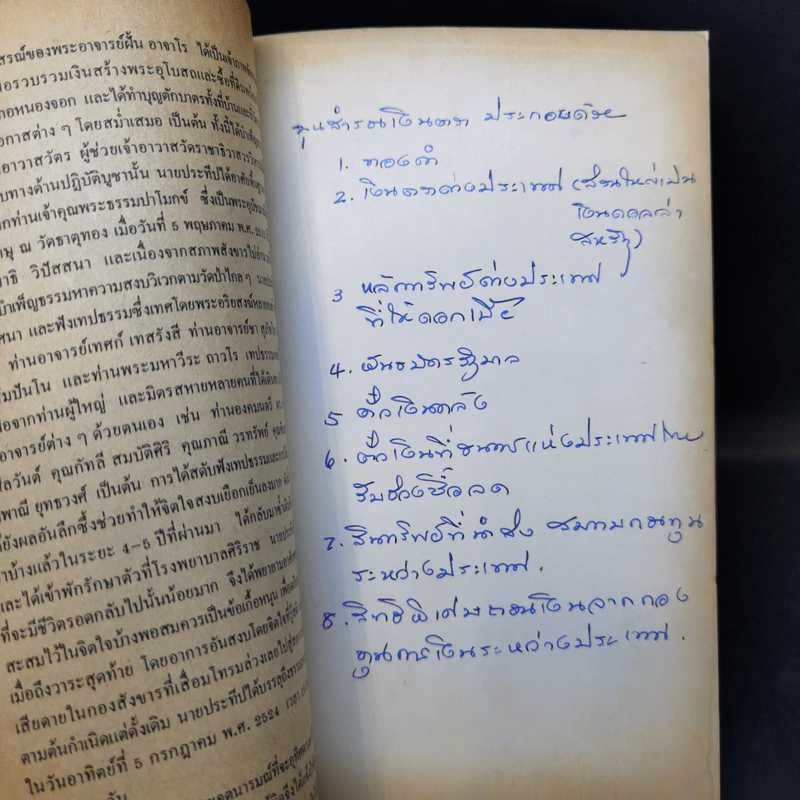 สรณ์ของพระอาจารย์ฝั้น อาจาโร ได้เป็นเจ้าภาพ
รวบรวมเงินสร้างพระอุโบสถและซื้อที่ดิน
หนองจอก และได้ทำบุญตักบาตรทั้งที่บ้านและที่
โอกาสต่าง ๆ โดยสม่ำเสมอ เป็นต้น ทั้งนี้ได้
อาวาสวัตร ผู้ช่วยเจ้าอาวาสวัดราชาธิวาส
ทางด้านปฏิบัติบูชานั้น นายประทีปได้อาศัย
ท่านเจ้าคุณพระธรรมปาโมกข์ ซึ่งเป็นพระ
ณ วัดธาตุทอง เมื่อวันที่ 5 พฤษภาคม พ.ศ.
วิปัสสนา และเนื่องจากสภาพสังขารไม่
บำเพ็ญธรรมหาความสงบวิเวกตามวัดป่าไกลๆ
และฟังเทปธรรมซึ่งเทศโดยพระอริยสงฆ์
ท่านอาจารย์เทศก์ เทสรังสี ท่านอาจารย์ชา
ปันโน และท่านพระมหาวีระ ถาวโร
จากท่านผู้ใหญ่ และมิตรสหายหลายคนที่ได้
อาจารย์ต่าง ๆ ด้วยตนเอง เช่น ท่านองคมนตรี
คุณกัทลี สมบัติศิริ คุณภาณี วรทรัพย์
ยุทธวงศ์ เป็นต้น การได้สดับฟังเทปธรรมและ
ยังผลอันลึกซึ้งช่วยทำให้จิตใจสงบเยือกเย็นลงมาก
บ้างแล้วในระยะ 4-5 ปีที่ผ่านมา ได้กลับมา
และได้เข้าพักรักษาตัวที่โรงพยาบาลศิริราช
ที่จะมีชีวิตรอดกลับไปนั้นน้อยมาก จึงได้พยายาม
สะสมไว้ในจิตใจบ้างพอสมควรเป็นข้อเกื้อหนุน
เมื่อถึงวาระสุดท้าย โดยอาการอันสงบโดยจิตใจที่
เสียดายในกองสังขารที่เสื่อมโทรมล่วงเลยไป
ตามต้นกำเนิดแต่ดั้งเดิม นายประทีปได้บรรลุถึง
ในวันอาทิตย์ที่ 5 กรกฎาคม พ.ศ. 2524 เวลา
ทุนสำรองเงินตรา ประกอบด้วย
1. ทองคำ
2. เงินตราต่างประเทศ (ส่วนใหญ่เป็น
เงินดอลล่า
สหรัฐ)
3 หลักทรัพย์ต่างประเทศ
ที่ให้ดอกเบี้ย
4. พันธบัตรรัฐบาล
5 ตั๋วเงินคลัง
6. ตั๋วเงินที่ธนาคารแห่งประเทศไทย
รับช่วงซื้อลด
7. สินทรัพย์ที่นำส่ง สมทบกองทุน
ระหว่างประเทศ.
8. สิทธิพิเศษถอนเงินจากกอง
ทุนการเงินระหว่างประเทศ.